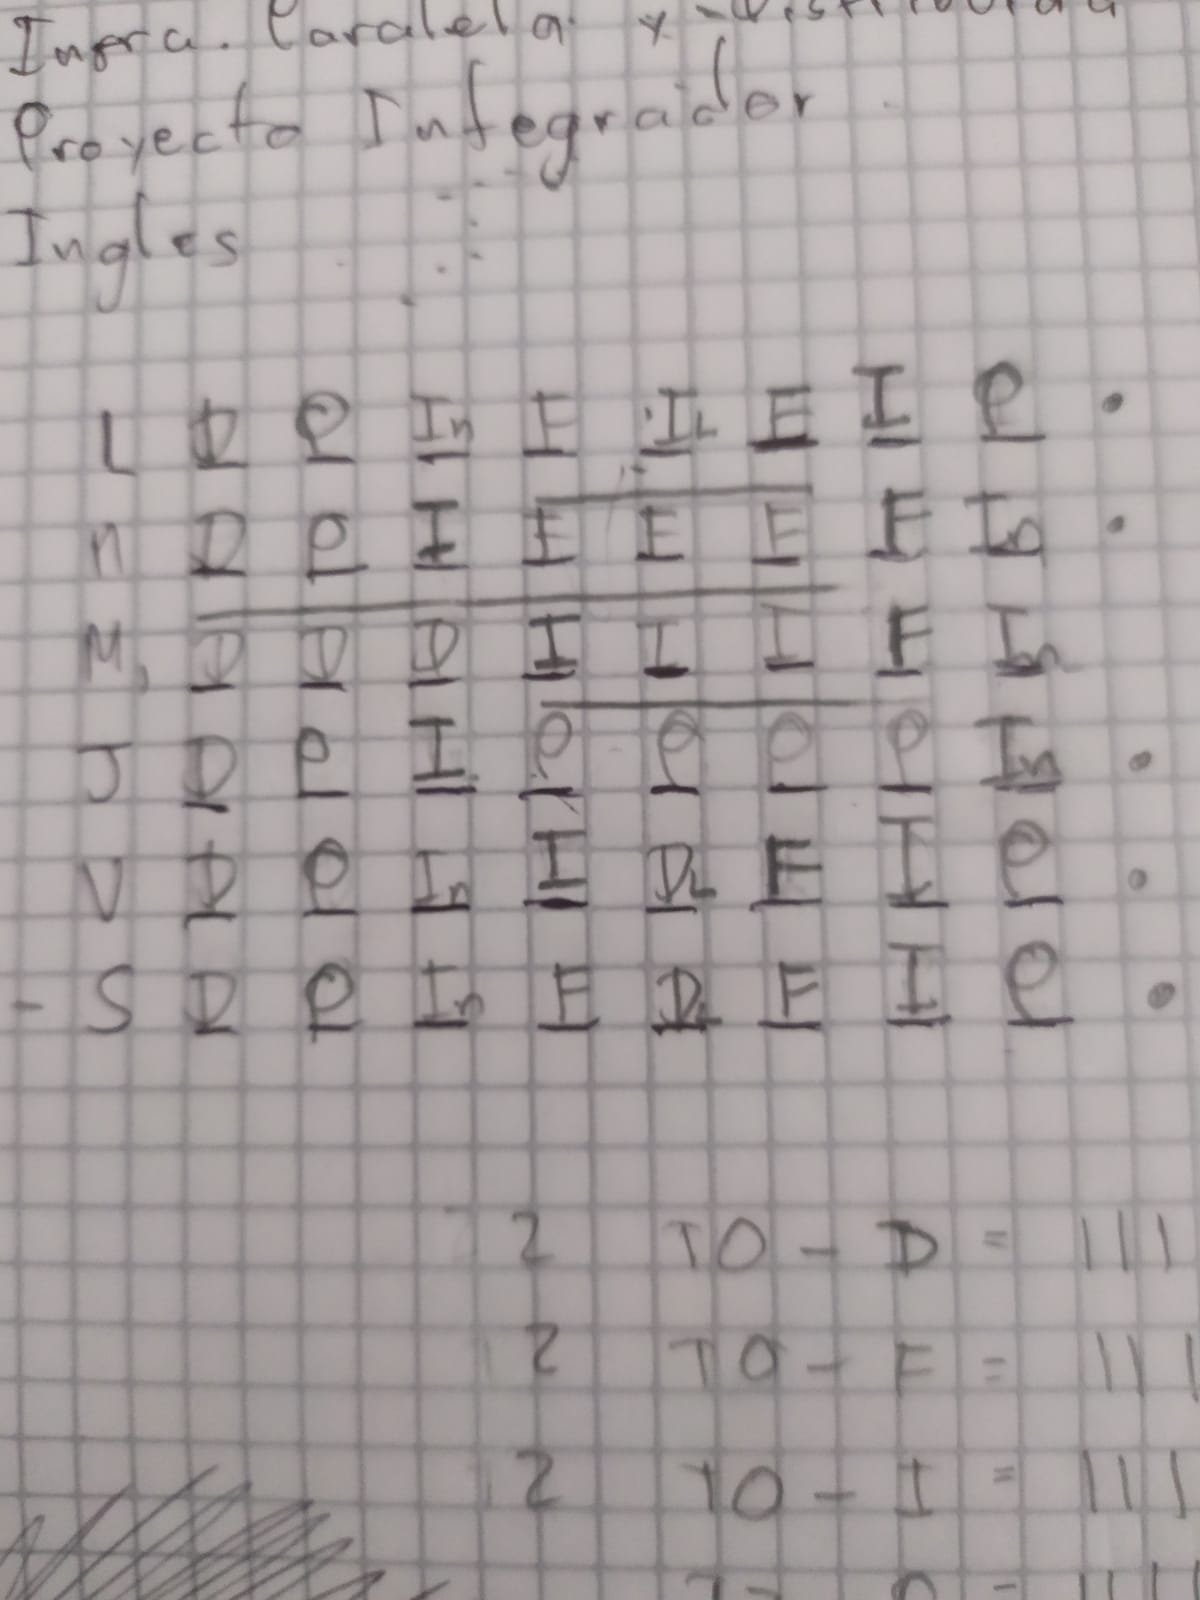 Infra. Paralela y Distribuida
Proyecto Integrador
Ingles
L D P In F IL E I P .
M D P I F F F F In .
Mi D D D I I I F In
J D P I P P P P In .
V D P In I DL F I P .
- S D P In F DL F I P .
2 TO - D = 111
2 TO - F = 111
2 TO - I = 111